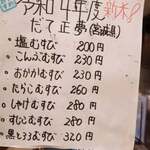 令和4年度
新米!
だて正夢(宮城県)
・塩むすび 200円
・こんぶむすび 230円
・おかかむすび 230円
・たらこむすび 260円
・しゃけむすび 280円
・すじこむすび 280円
・黒とろろむすび 320円